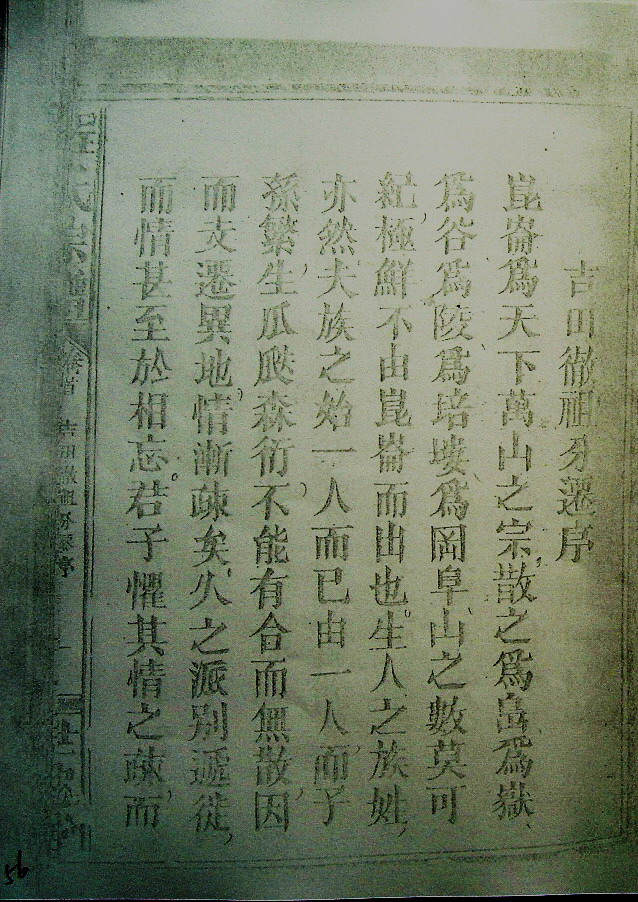 吉田徹祖分遷序
崑崙爲天下萬山之宗，散之爲島、爲嶽、
爲谷、爲陵、爲培塿、爲岡阜、山之數莫可
紀，極鮮不由崑崙而出也。生人之族姓，
亦然夫族之始一人而已由一人而子
孫繁生，瓜瓞森衍，不能有合而無散，因
而支遷異地，情漸疎矣，久之派别遞徙，
而情甚至於相忘。君子懼其情之疎，而
氏宗
卷首
吉田徹祖分遷序
56